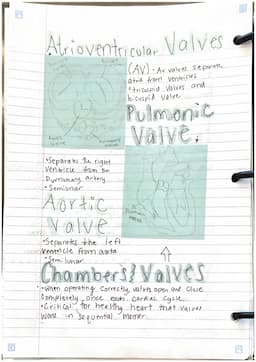 Atrioventricular Valves
(AV) - AV valves separate
atria from ventricles
• tricuspid valves and
bicuspid valve
Pulmonic
Valve
• Separates the right
ventricle from the
pulmonary artery
• Semilunar
Aortic
Valve
• Separates the left
ventricle from aorta
• Semilunar
Chambers & Valves
• When operating correctly, valves open and close
completely once each cardiac cycle
• Critical for healthy heart that valves
work in sequential manner